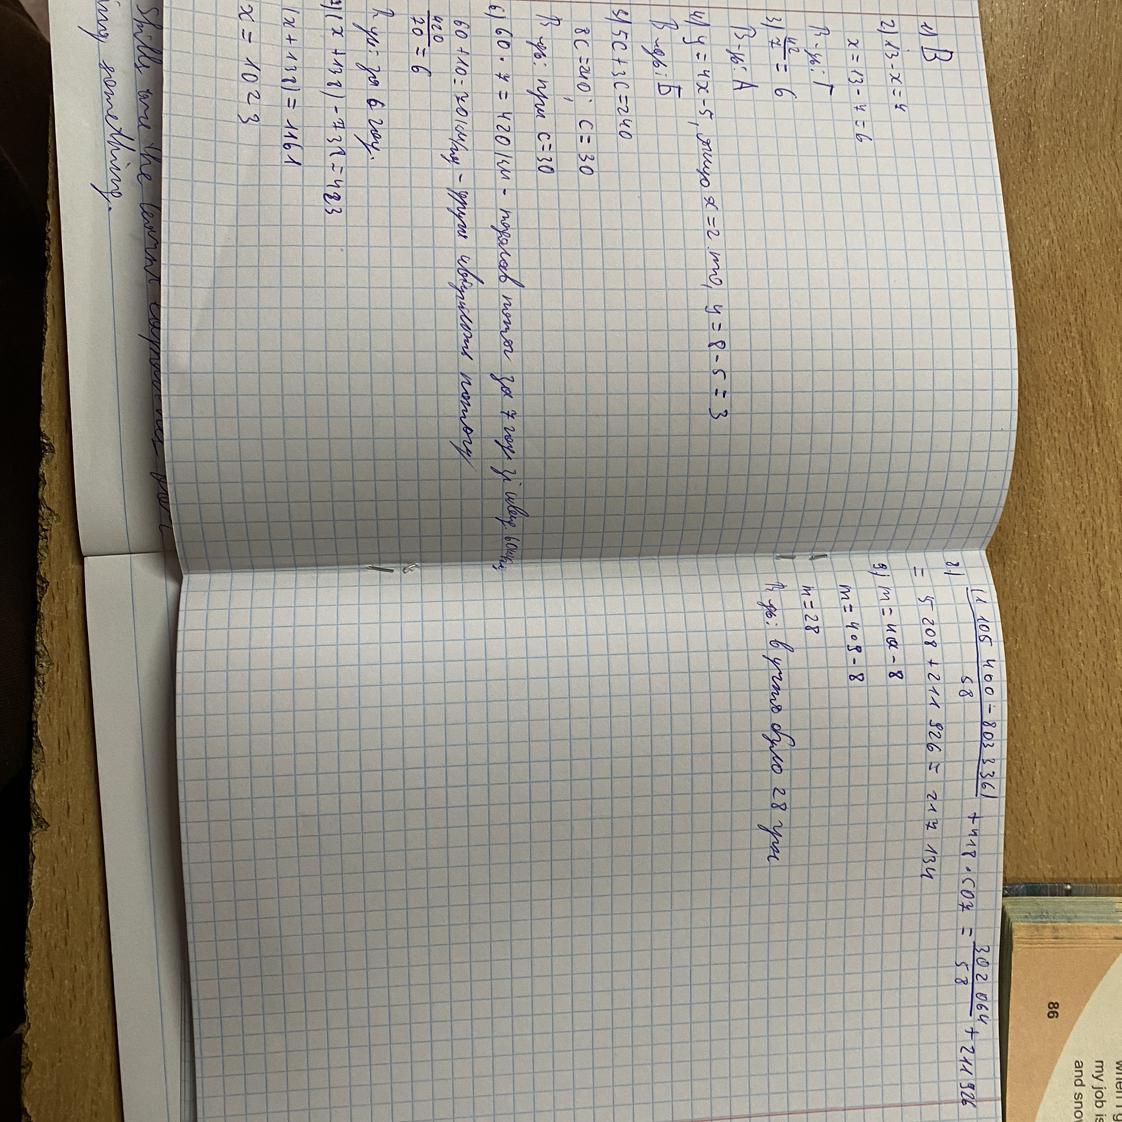 1) В
2) 13 - x = 4
x = 13 - 4 = 6
В-дь: Г
3) 42/7 = 6
В-дь: А
4) y = 4x - 5, якщо x = 2 то, y = 8 - 5 = 3
В-дь: Б
5) 5c + 3c = 240
8c = 240; c = 30
В-дь: при c = 30
6) 60 · 7 = 420 км - проїхав потяг за 7 год зі швид. 60 км/год
60 + 10 = 70
420/70 = 6
В-дь: за 6 год.
7) (x + 138) - 738 = 423
(x + 138) = 1161
x = 1023
8) (1 105 400 - 803 336)/58 + 418 · 507 = 302 064/58 + 211 926
= 5 208 + 211 926 = 217 134
9) m = 4a - 8
m = 4 · 9 - 8
m = 28
В-дь: 28 грн
Skills are the
ing something.
86
when I g
my job is
and snow